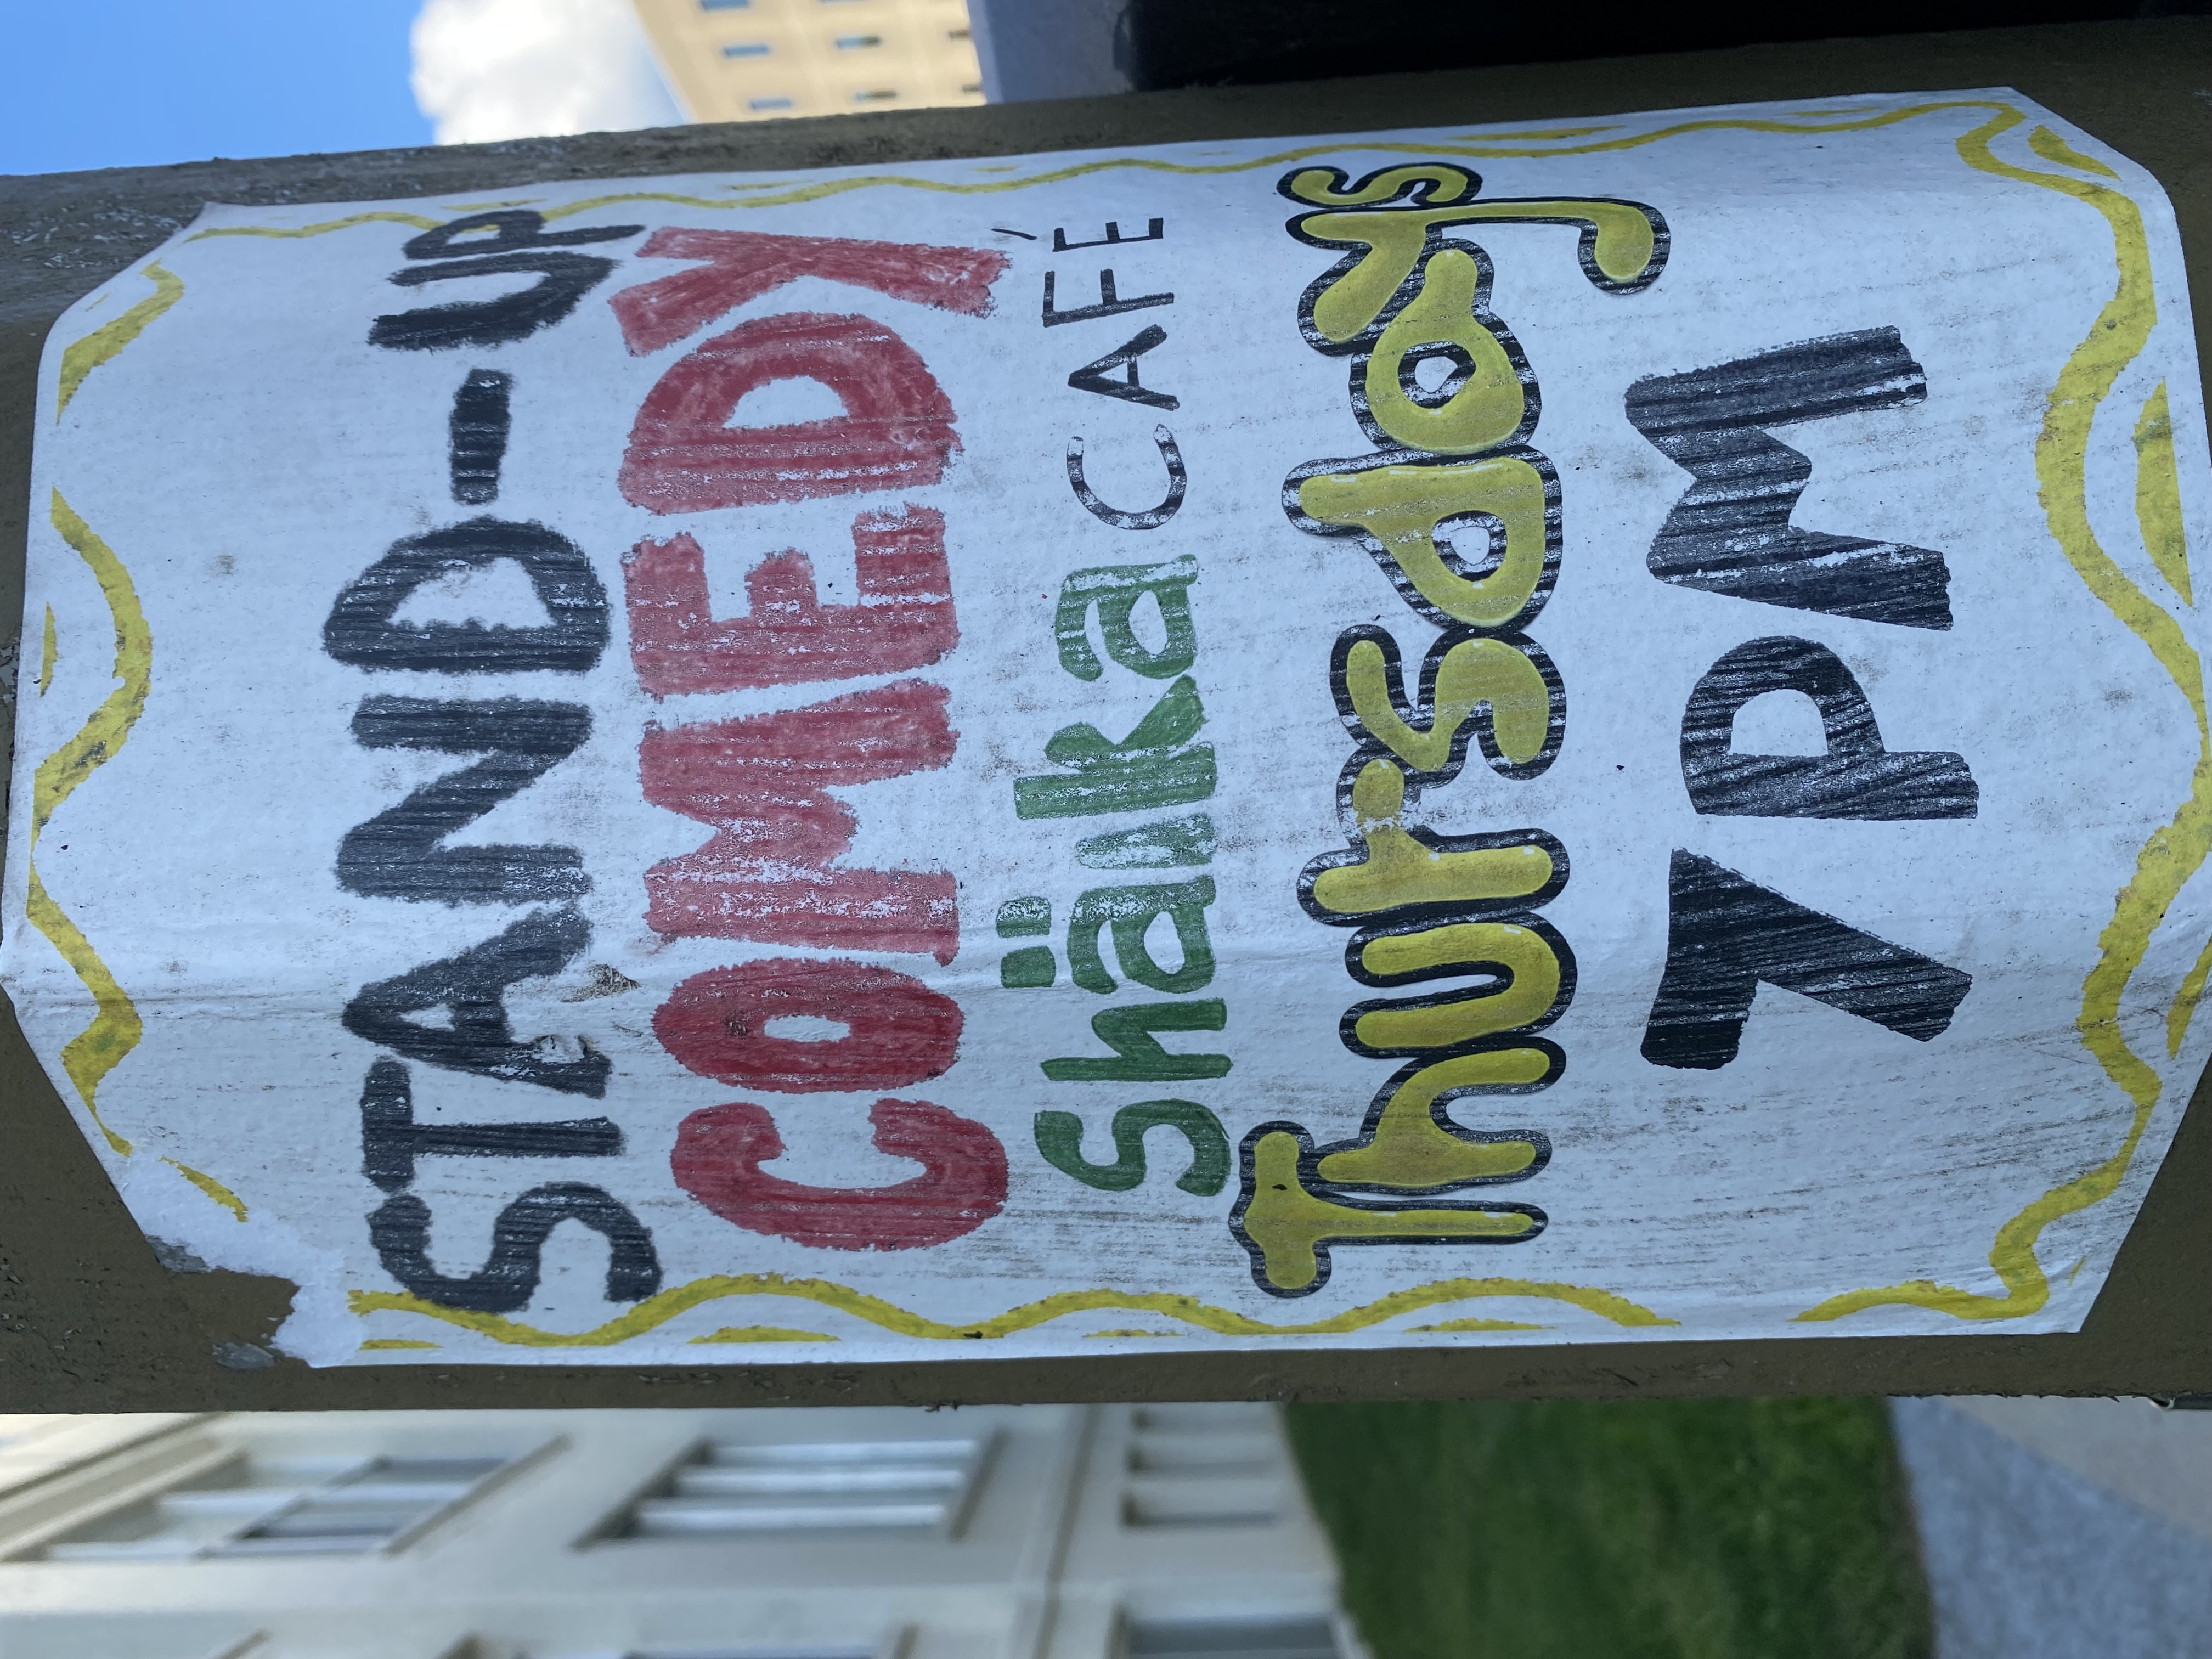 STAND-UP
COMEDY
Shäıka CAFÉ
Thursdays
7 PM